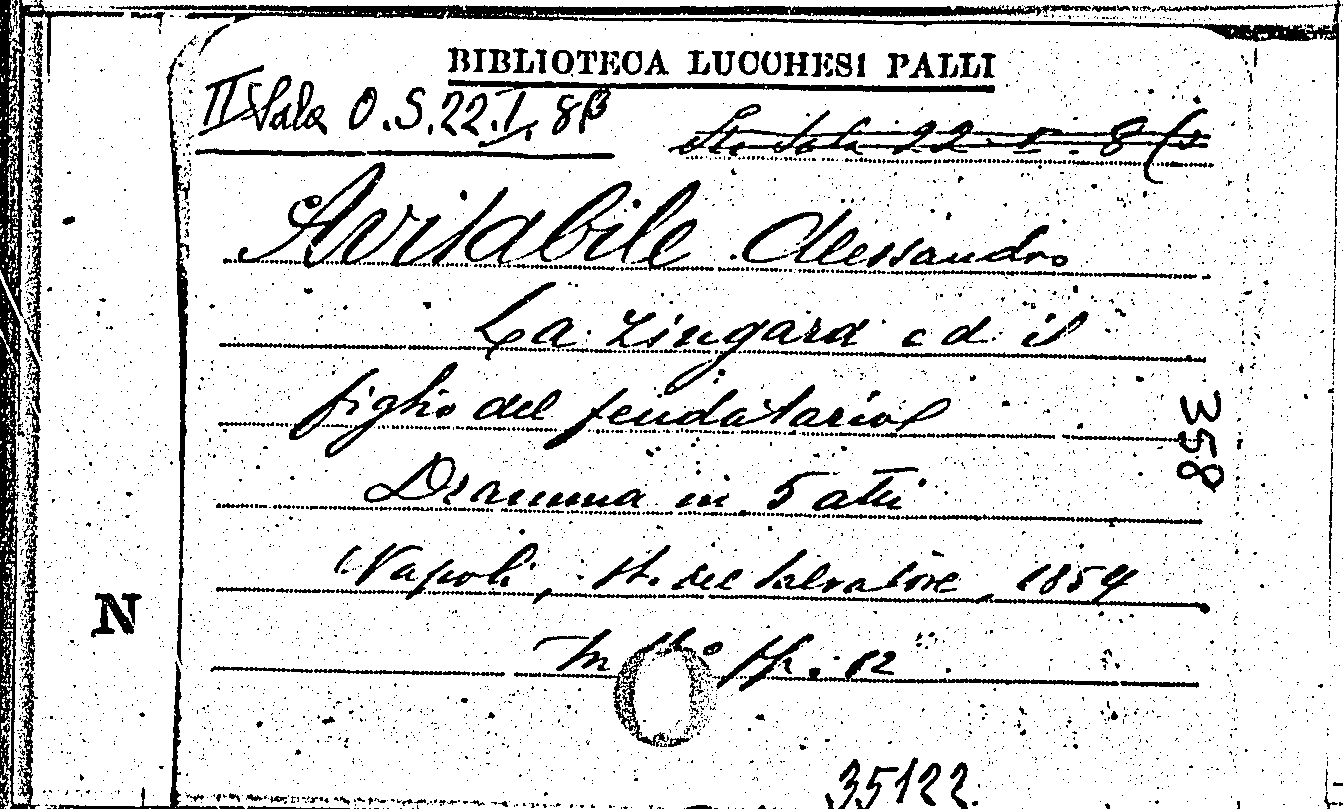 BIBLIOTECA LUCCHESI PALLI
II Sala O.S.22.I. 8β
Sala 22. 8
Avitabile Alessandro
La Zingara ed il
figlio del feudatario
358
Dramma in 5 atti
Napoli, St. del Salvatore, 1854
N
In pp. 82
35122.